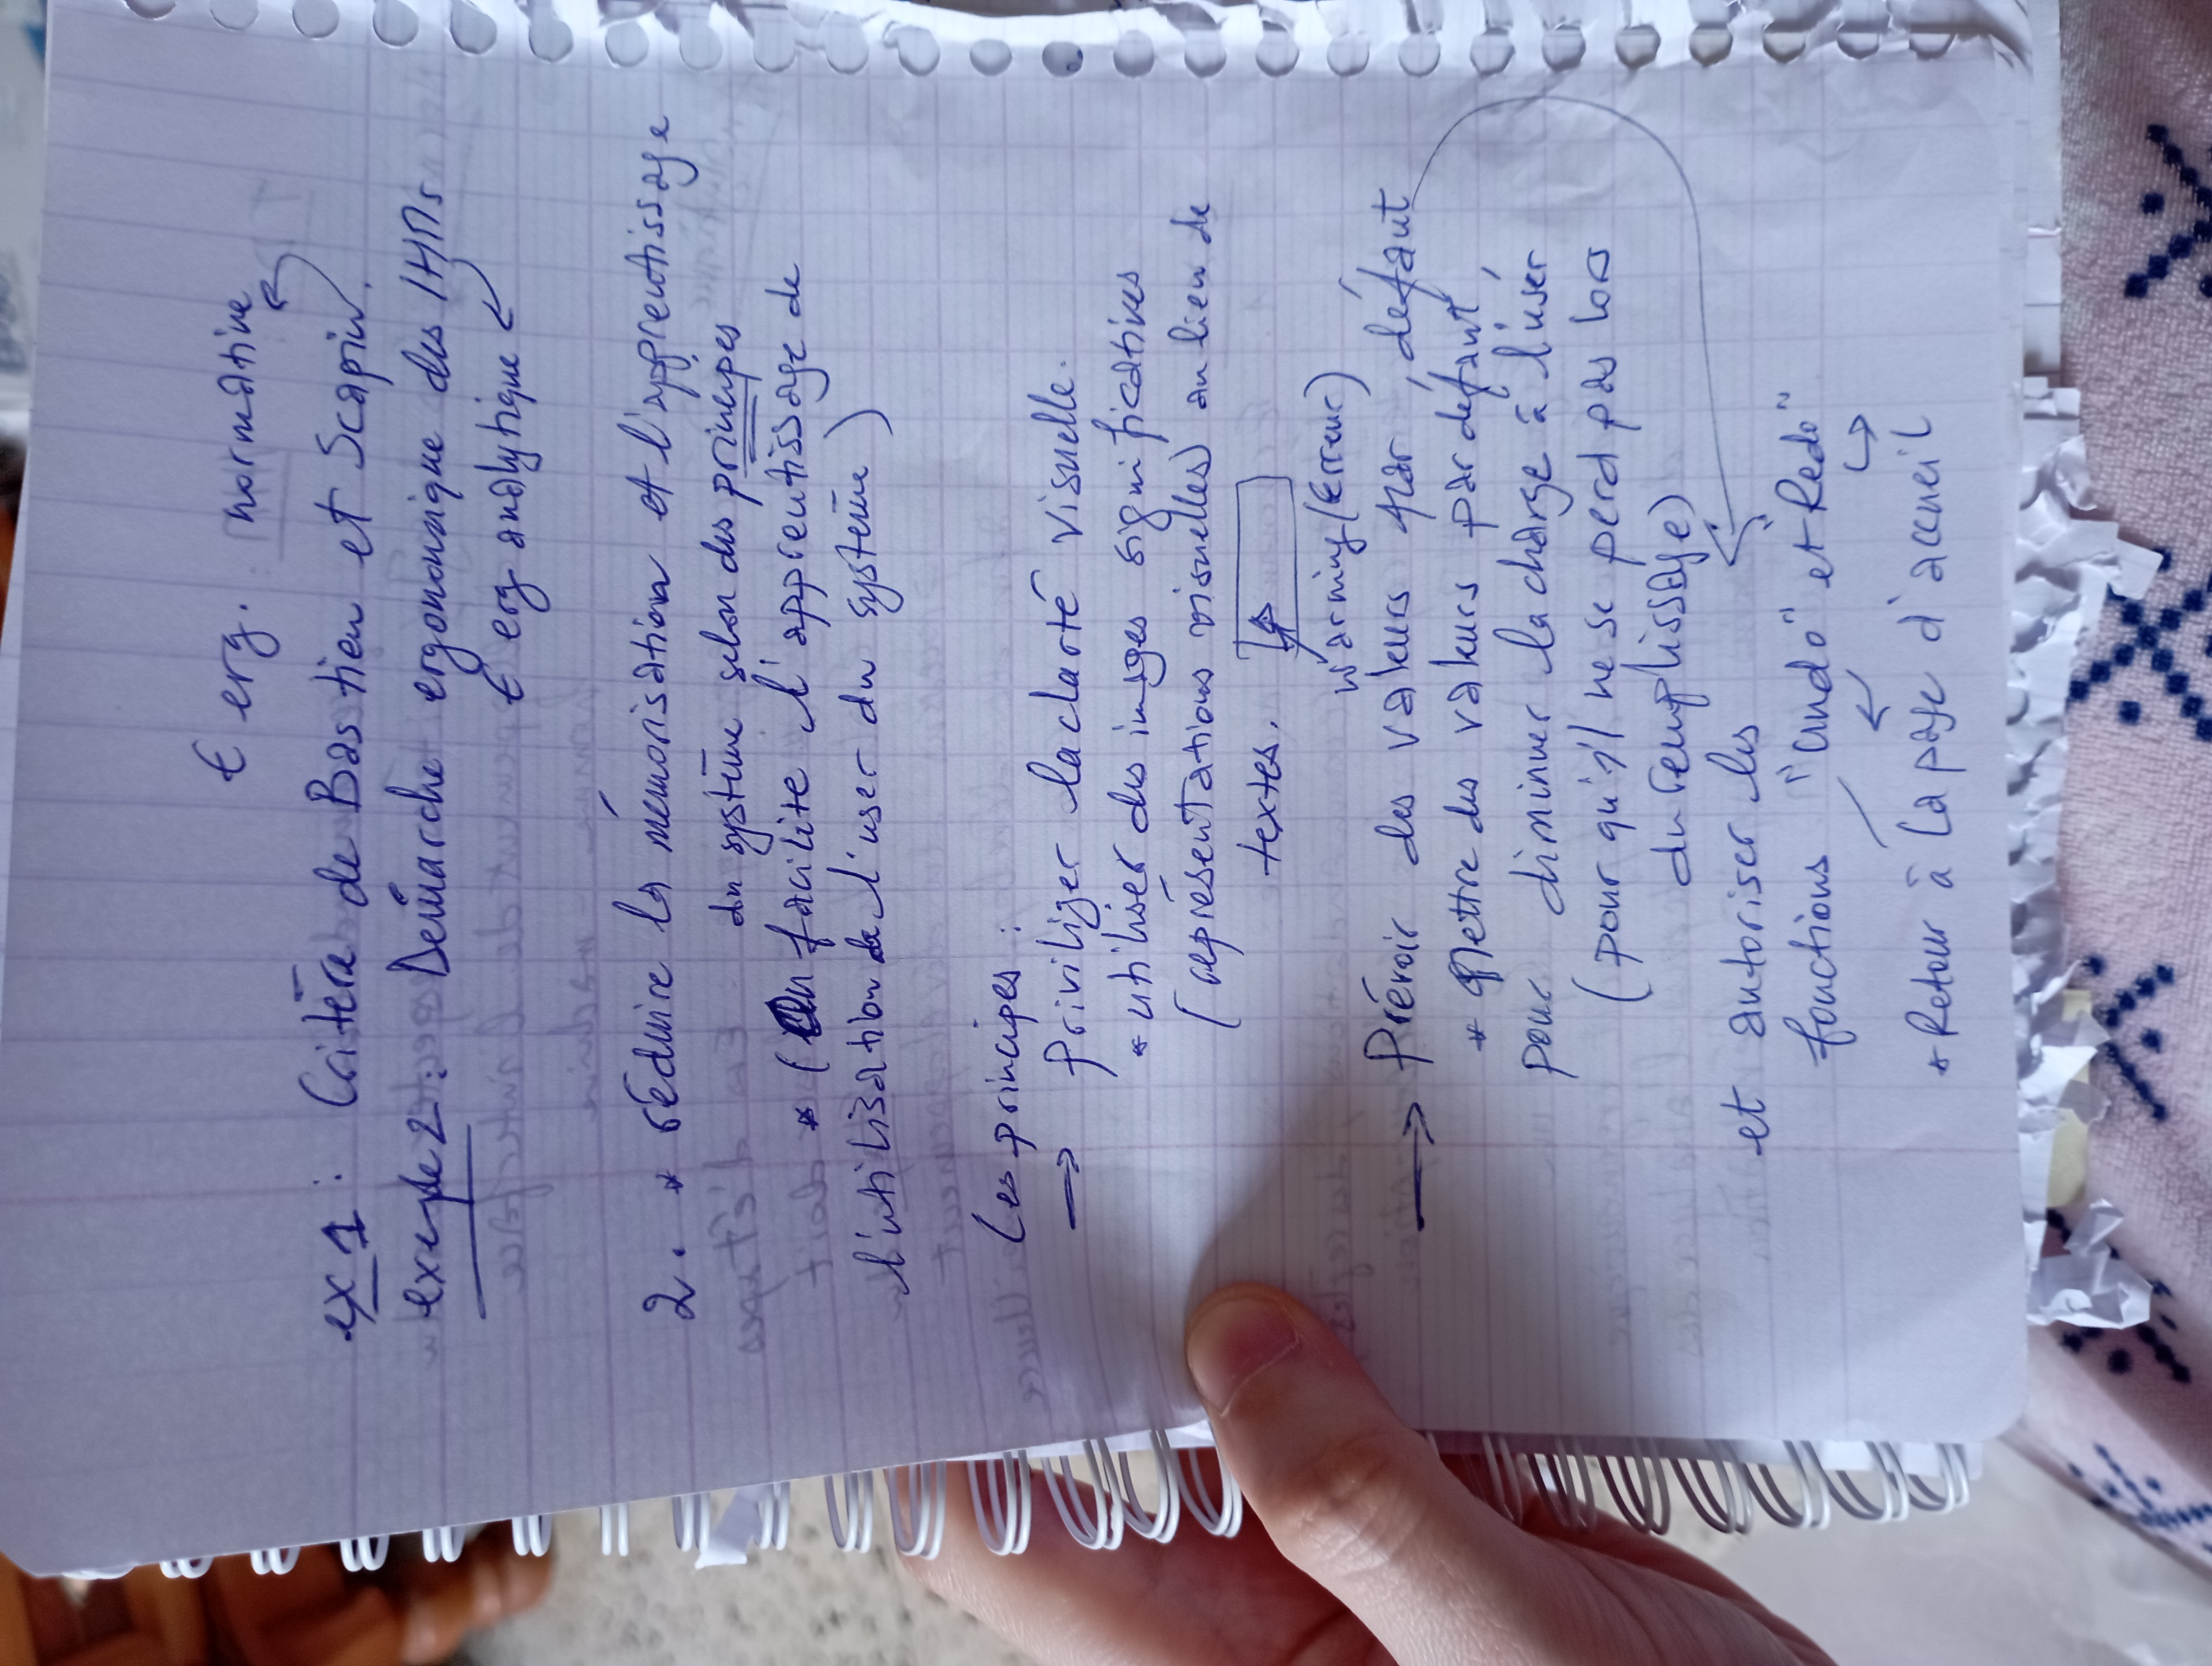 € erg. normative
ex 1 : Critère de Bastien et Scapin.
exemple 2 : Démarche ergonomique des IHMs
€ erg analytique
2. * réduire la mémorisation et l'apprentissage
du système selon des principes
* (On facilite l'apprentissage de
l'utilisation de l'user du système)
Les principes :
→ Priviliger la clarté visuelle.
* utiliser des images significatives
(représentations visuelles) au lieu de
textes.
warning/(Erreur)
→ Prévoir des valeurs par défaut
* Mettre des valeurs par défaut,
pour diminuer la charge à l'user
(pour qu'il ne se perd pas lors
du remplissage)
et autoriser les
fonctions "Undo" et "Redo"
* Retour à la page d'accueil